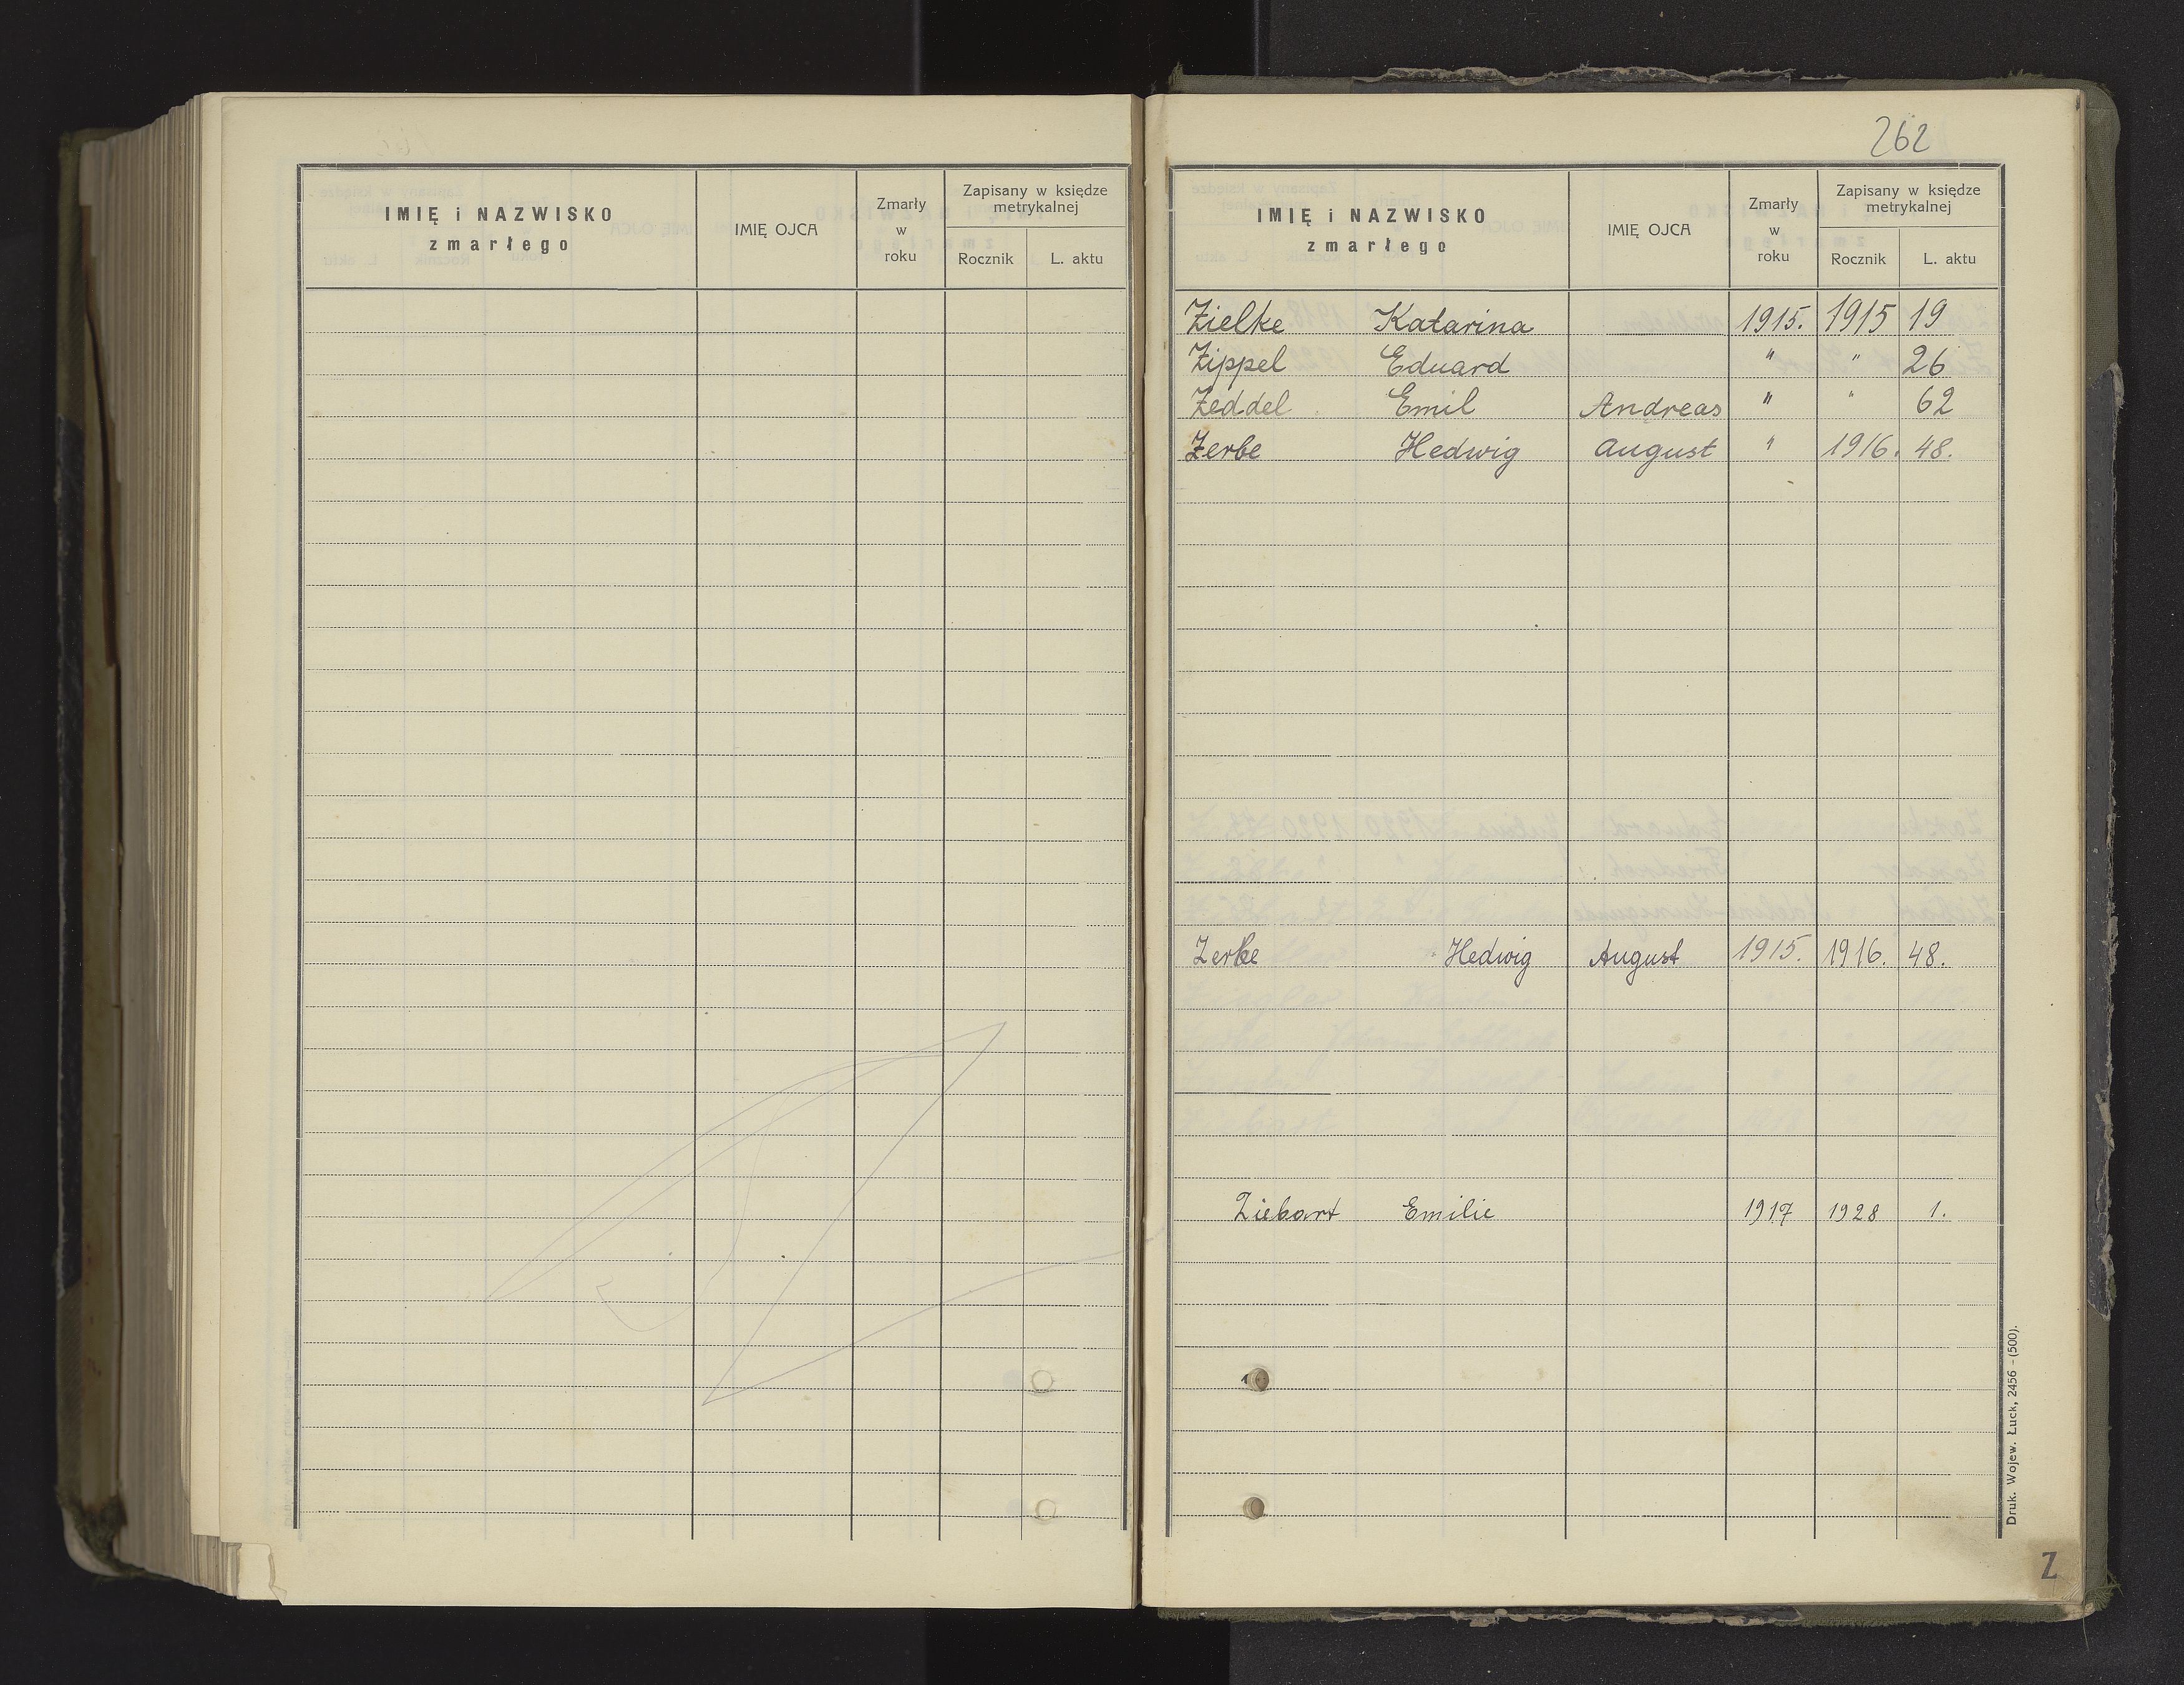 IMIĘ i NAZWISKO
zmarłego
IMIĘ OJCA
Zmarły
w
roku
Zapisany w księdze
metrykalnej
Rocznik L. aktu
262
IMIĘ i NAZWISKO
zmarłego
IMIĘ OJCA
Zmarły
w
roku
Zapisany w księdze
metrykalnej
Rocznik L. aktu
Zielke Katarina 1915. 1915 19
Zippel Eduard " " 26
Zeddel Emil Andreas " " 62
Zerbe Hedwig August " 1916. 48.
Zerbe Hedwig August 1915. 1916. 48.
Ziebart Emilie 1917 1928 1.
Druk. Wojew. Łuck, 2456 - (500).
Z